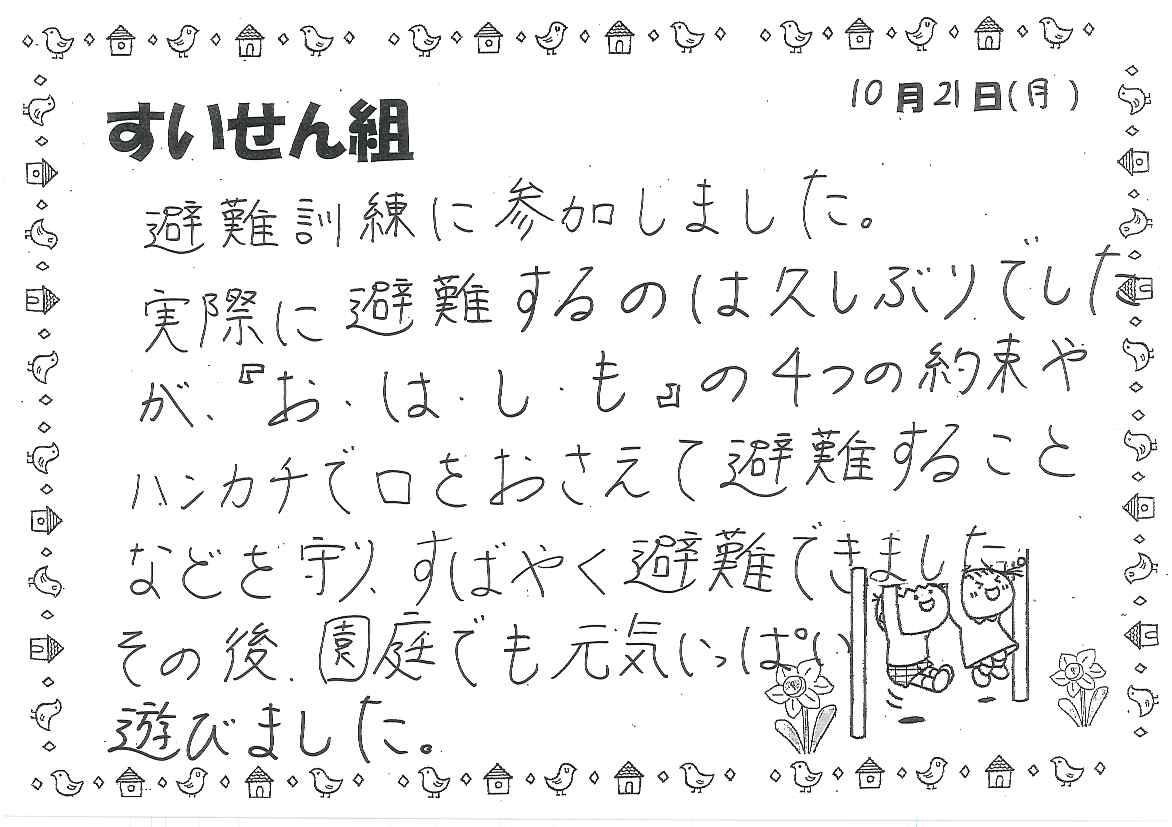 10月21日(月)
すいせん組
避難訓練に参加しました。
実際に避難するのは久しぶりでした
が、『お・は・し・も』の4つの約束や
ハンカチで口をおさえて避難すること
などを守り、すばやく避難できました。
その後、園庭でも元気いっぱい
遊びました。